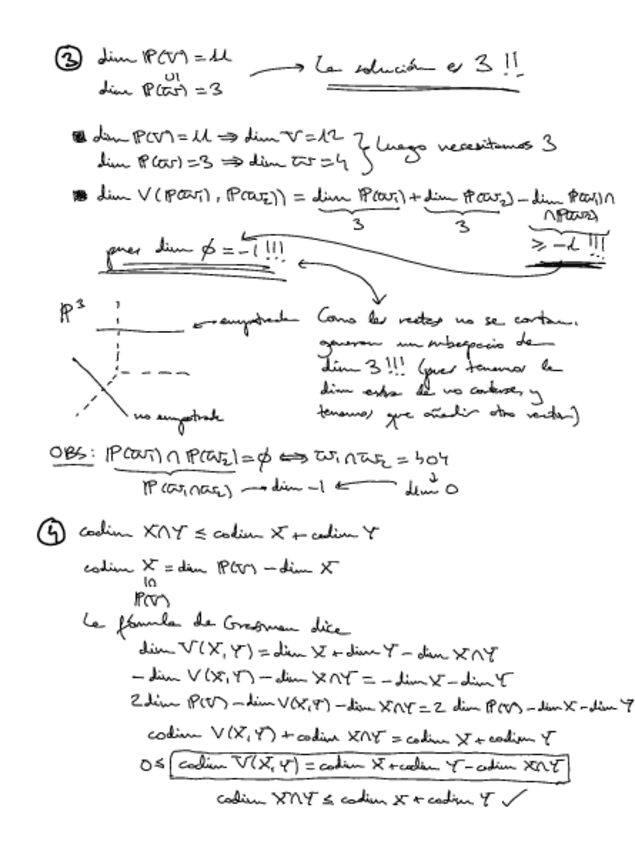 ③ dim P(V) = 11
∪|
dim P(W) = 3 → La solución es 3 !!
▪ dim P(V) = 11 ⇒ dim V = 12
dim P(W) = 3 ⇒ dim W = 4 } Luego necesitamos 3
▪ dim V(P(W₁), P(W₂)) = dim P(W₁) + dim P(W₂) - dim P(W₁) ∩
∩ P(W₂)
3 3
≥ -1 !!!
pues dim ∅ = -1 !!!
P³ ← empotrada
no empotrada
Como las rectas no se cortan,
generan un subespacio de
dim 3 !!! (pues tenemos la
dim extra de no cortarse, y
tenemos que añadir otro vector)
OBS: P(W₁) ∩ P(W₂) = ∅ ⇔ W₁ ∩ W₂ = {0}
P(W₁ ∩ W₂) → dim -1 ← dim 0
④ codim X∩Y ≤ codim X + codim Y
codim X = dim P(V) - dim X
|∩
P(V)
La fórmula de Grassman dice
dim V(X, Y) = dim X + dim Y - dim X∩Y
- dim V(X, Y) - dim X∩Y = - dim X - dim Y
2 dim P(V) - dim V(X, Y) - dim X∩Y = 2 dim P(V) - dim X - dim Y
codim V(X, Y) + codim X∩Y = codim X + codim Y
0 ≤ codim V(X, Y) = codim X + codim Y - codim X∩Y
codim X∩Y ≤ codim X + codim Y ✓